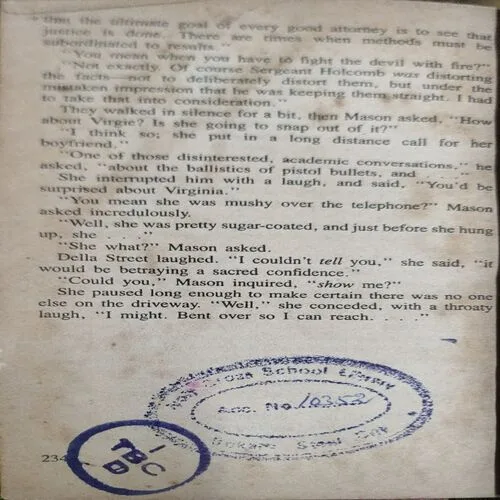 that the ultimate goal of every good attorney is to see that
justice is done. There are times when methods must be
subordinated to results."
"You mean when you have to fight the devil with fire?"
"Not exactly. Of course Sergeant Holcomb was distorting
the facts—not to deliberately distort them, but under the
mistaken impression that he was keeping them straight. I had
to take that into consideration."
They walked in silence for a bit, then Mason asked, "How
about Virgie? Is she going to snap out of it?"
"I think so; she put in a long distance call for her
boyfriend."
"One of those disinterested, academic conversations," he
asked, "about the ballistics of pistol bullets, and . . ."
She interrupted him with a laugh, and said, "You'd be
surprised about Virginia."
"You mean she was mushy over the telephone?" Mason
asked incredulously.
"Well, she was pretty sugar-coated, and just before she hung
up, she . . ."
"She what?" Mason asked.
Della Street laughed. "I couldn't tell you," she said, "it
would be betraying a sacred confidence."
"Could you," Mason inquired, "show me?"
She paused long enough to make certain there was no one
else on the driveway. "Well," she conceded, with a throaty
laugh, "I might. Bent over so I can reach. . . ."
Cross School Library
Acc. No. 10352
Bokaro Steel City
1
TBC
D
234